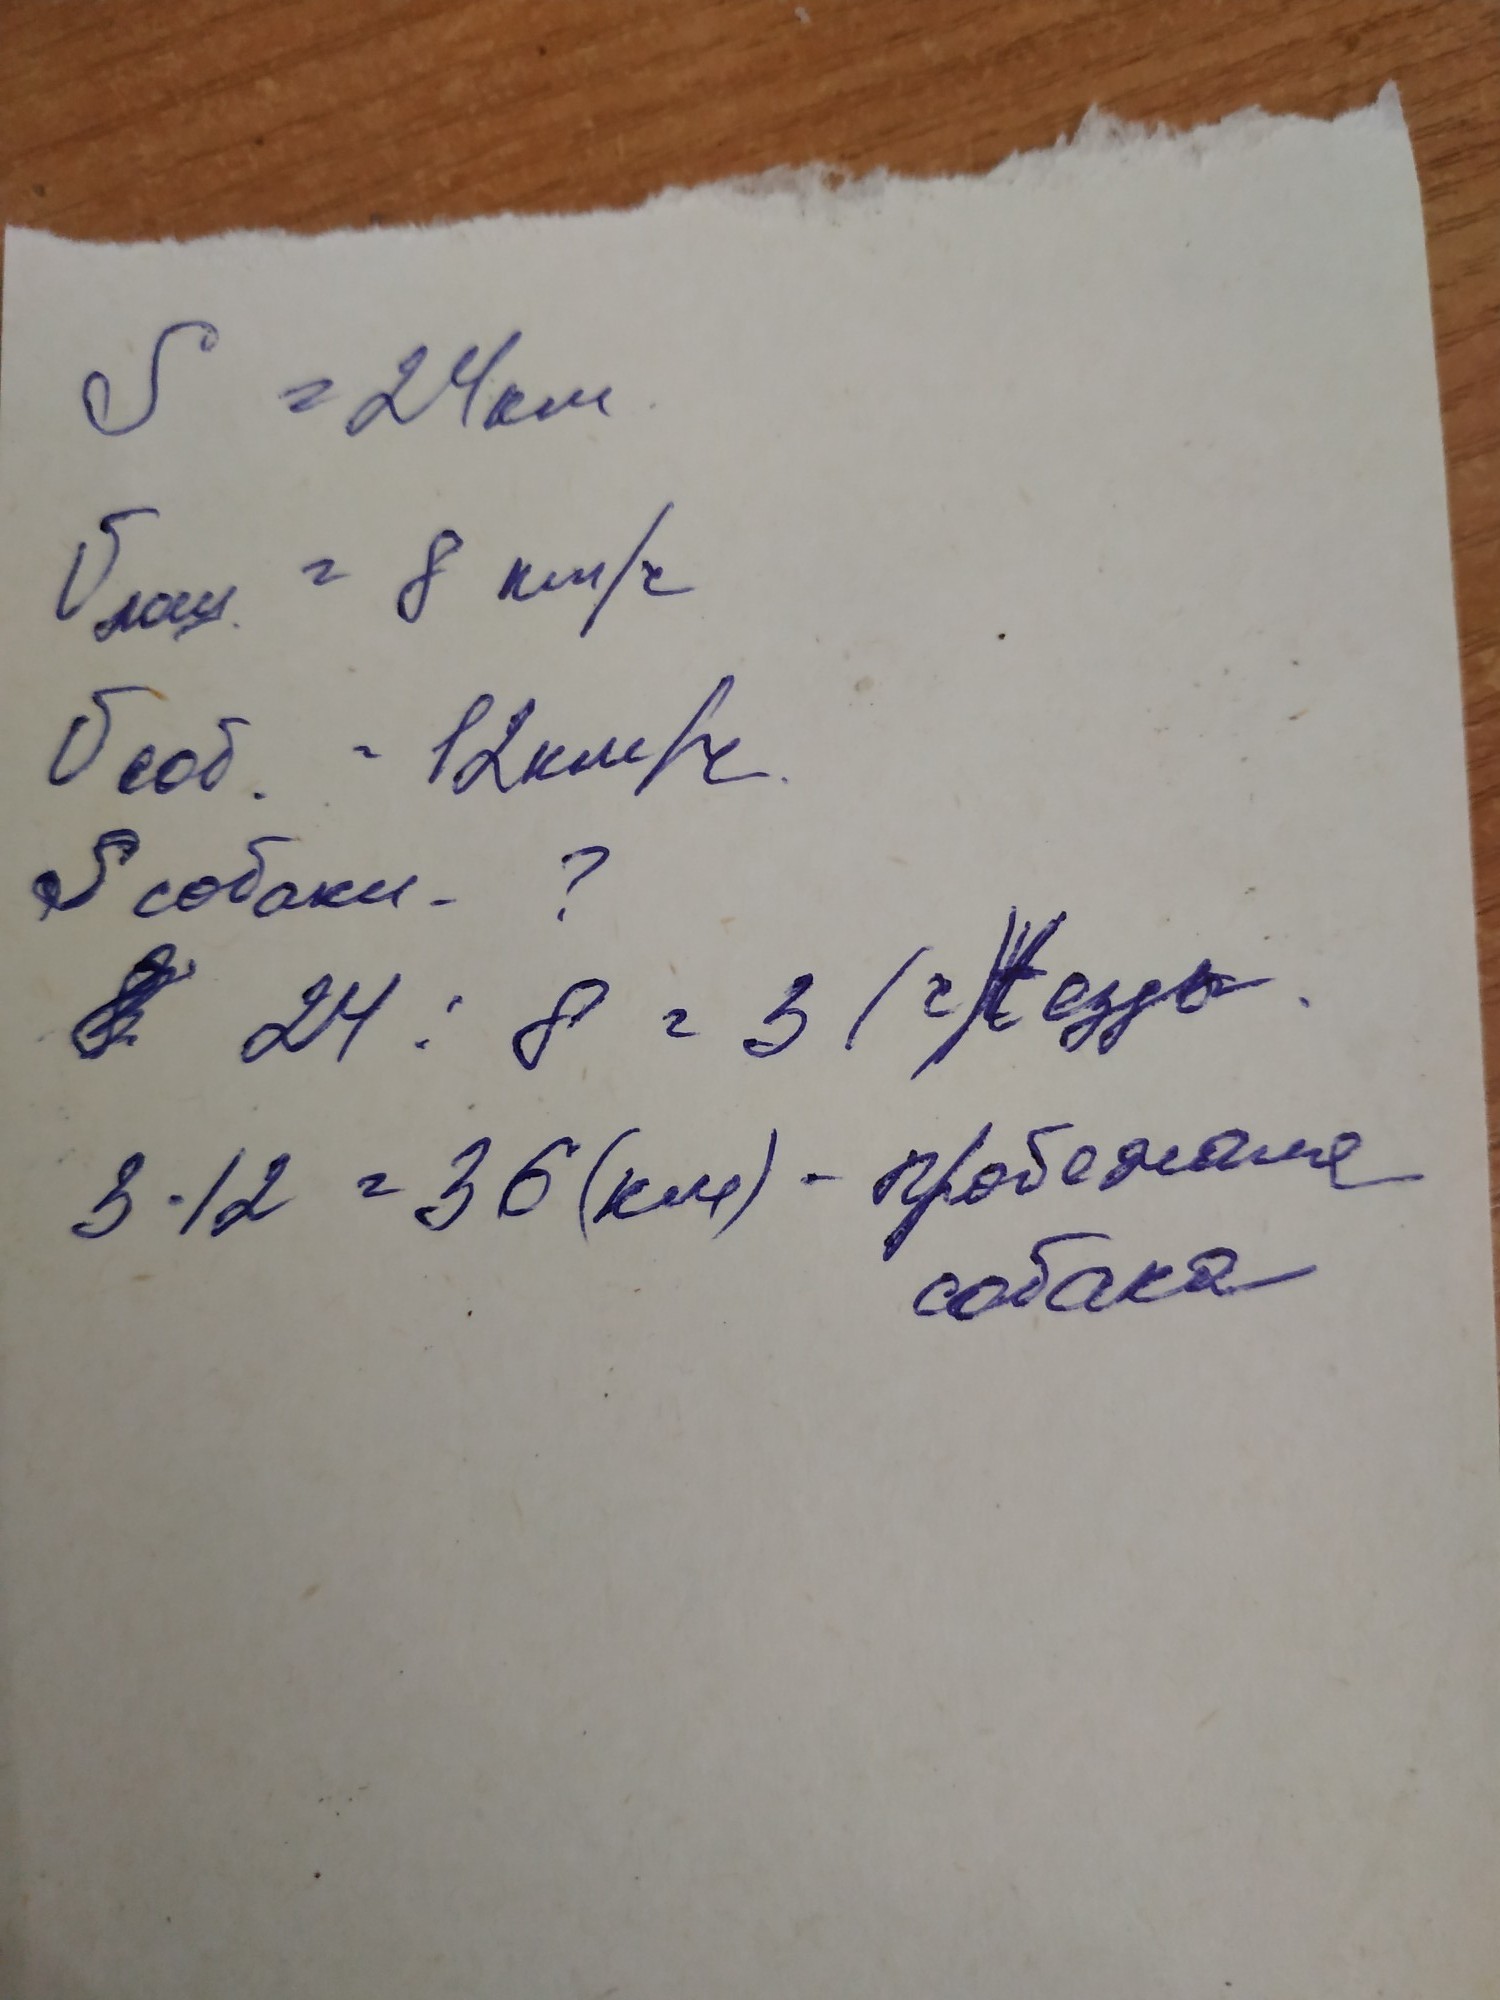 S = 24км
Vлош. = 8 км/ч
Vсоб. = 12км/ч.
S собаки - ?
24 : 8 = 3 (ч) t езды.
3 · 12 = 36 (км) - пробежала
собака